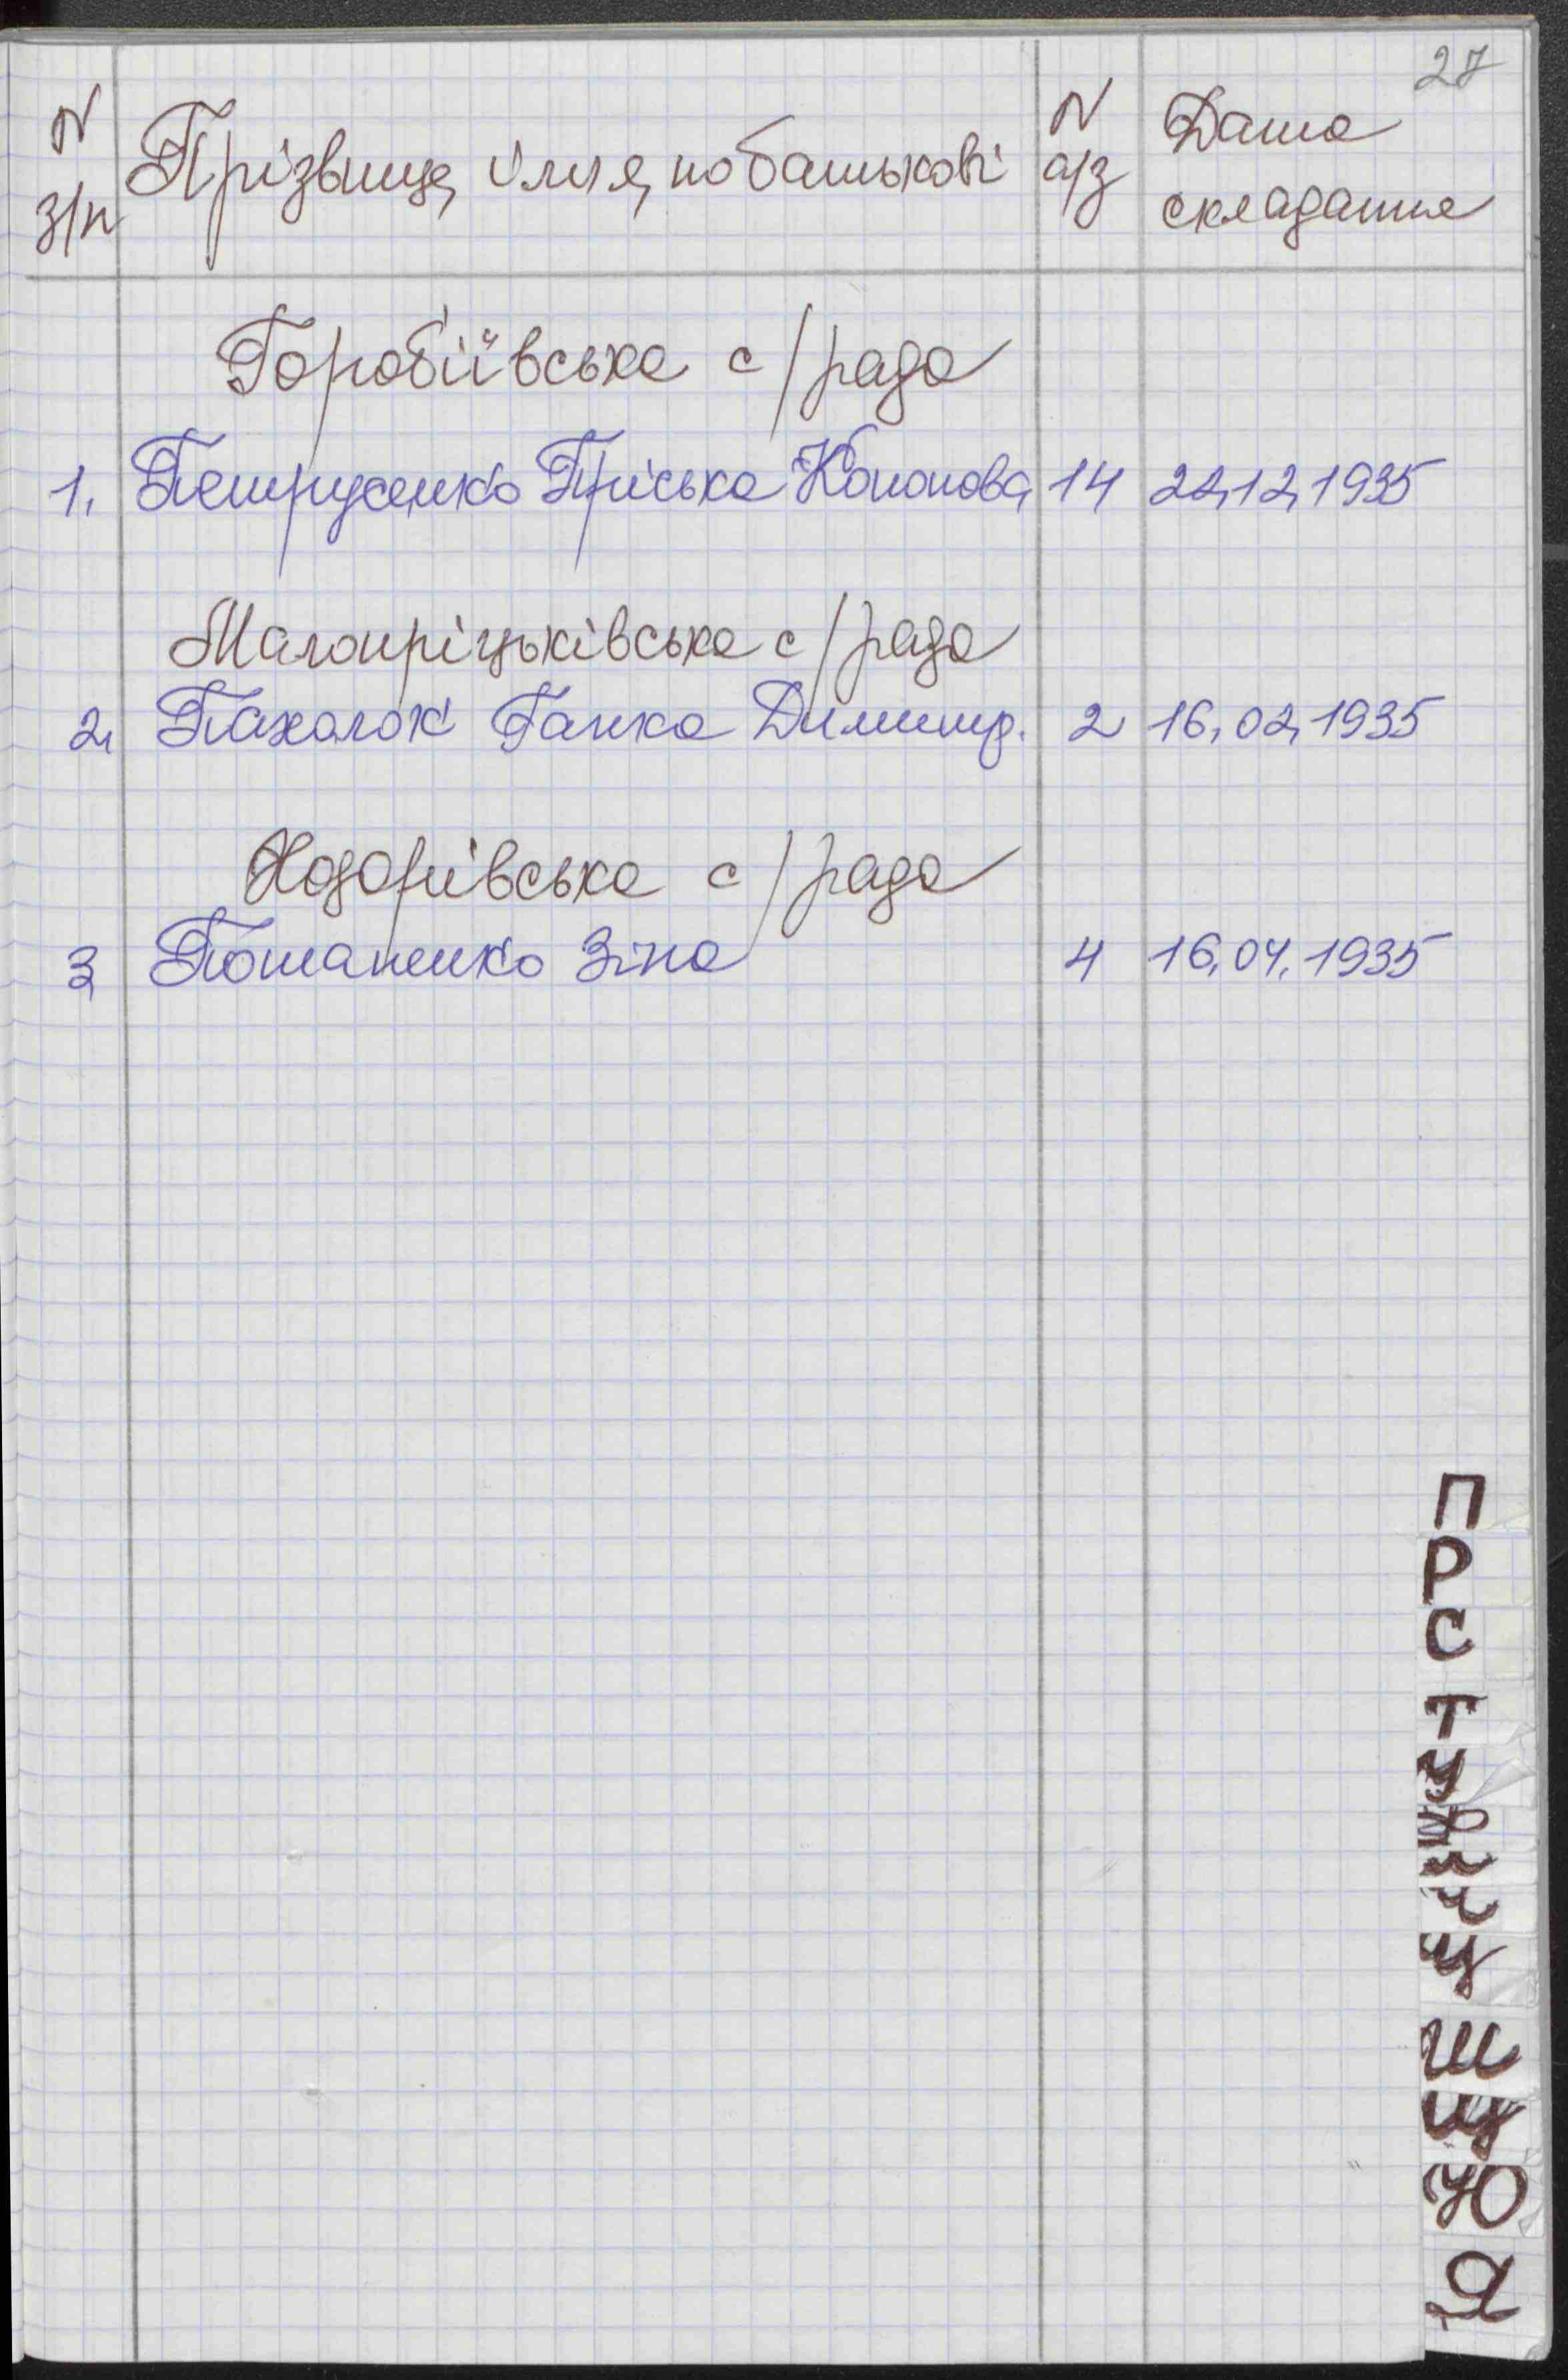 27
N з/п Прізвище, ім'я, по батькові N а/з Дата складання
Горобіївська с/рада
1. Петрусенко Пріська Кононова 14 22.12.1935
Малопріцьківська с/рада
2. Пахолок Ганна Димитр. 2 16.02.1935
Ходорівська с/рада
3. Потапенко Зіна 4 16.04.1935
П
Р
С
Т
У
Ф
Х
Ц
Ш
Щ
Ю
Я